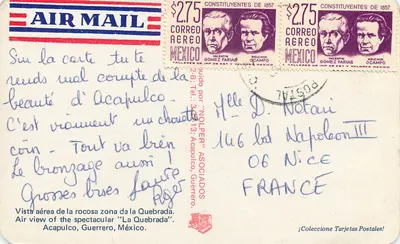 AIR MAIL
$2.75
CORREO
AEREO
MEXICO
CONSTITUYENTES DE 1857
VALENTIN
GOMEZ FARIAS
MELCHOR
OCAMPO
$2.75
CORREO
AEREO
MEXICO
CONSTITUYENTES DE 1857
VALENTIN
GOMEZ FARIAS
MELCHOR
OCAMPO
POSTAL
Sur la carte tu te
rends mal compte de la
beauté d'Acapulco.
C'est vraiment un chouette
coin. Tout va bien
Le bronzage aussi !
Grosses bises
Roger
por "NOLPER" ASOCIADOS
Acapulco, Guerrero.
Mlle D. Notari
146 bd Napoléon III
06 NICE
FRANCE
Vista aérea de la rocosa zona de la Quebrada.
Air view of the spectacular "La Quebrada".
Acapulco, Guerrero, México.
¡Coleccione Tarjetas Postales!